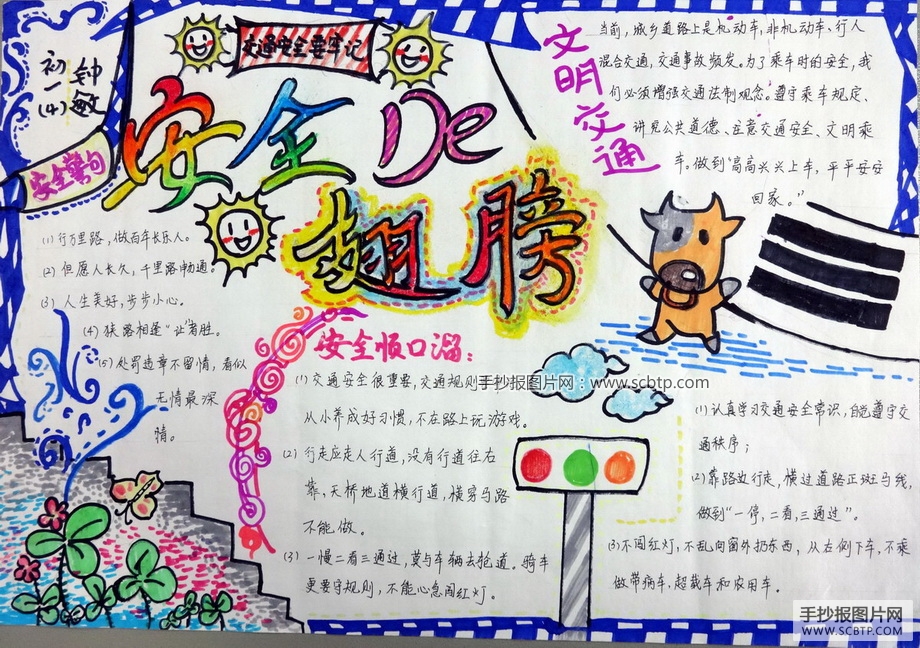 初一(4)
钟敏
交通安全要牢记
安全De
翅膀
安全警句
(1) 行万里路，做百年长乐人。
(2) 但愿人长久，千里路畅通。
(3) 人生美好，步步小心。
(4) 狭路相逢“让”者胜。
(5) 处罚违章不留情，看似
无情最深
情。
文明交通
当前，城乡道路上是机动车，非机动车、行人
混合交通，交通事故频发。为了乘车时的安全，我
们必须增强交通法制观念。遵守乘车规定、
讲见公共道德、注意交通安全、文明乘
车。做到“高高兴兴上车，平平安安
回家。”
安全顺口溜：
(1) 交通安全很重要，交通规则
从小养成好习惯，不在路上玩游戏。
(2) 行走应走人行道，没有行道往右
靠，天桥地道横行道，横穿马路
不能做。
(3) 一慢二看三通过，莫与车辆去抢道。骑车
更要守规则，不能心急闯红灯。
手抄报图片网：www.scbtp.com
(1) 认真学习交通安全常识，自觉遵守交
通秩序；
(2) 靠路边行走，横过道路正班马线，
做到“一停，二看，三通过”。
(3) 不闯红灯，不乱向窗外扔东西，从右侧下车，不乘
做带病车，超载车和农用车。
手抄报图片网
WWW.SCBTP.COM